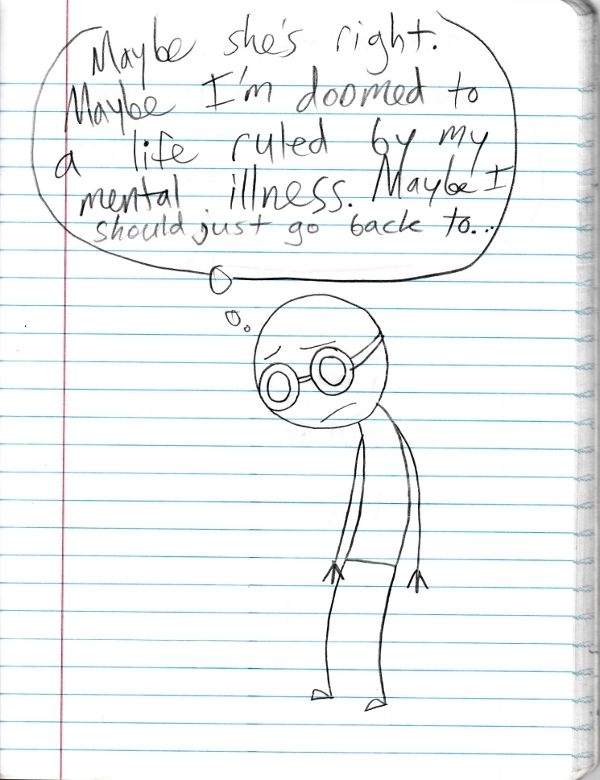 Maybe she's right.
Maybe I'm doomed to
a life ruled by my
mental illness. Maybe I
should just go back to...